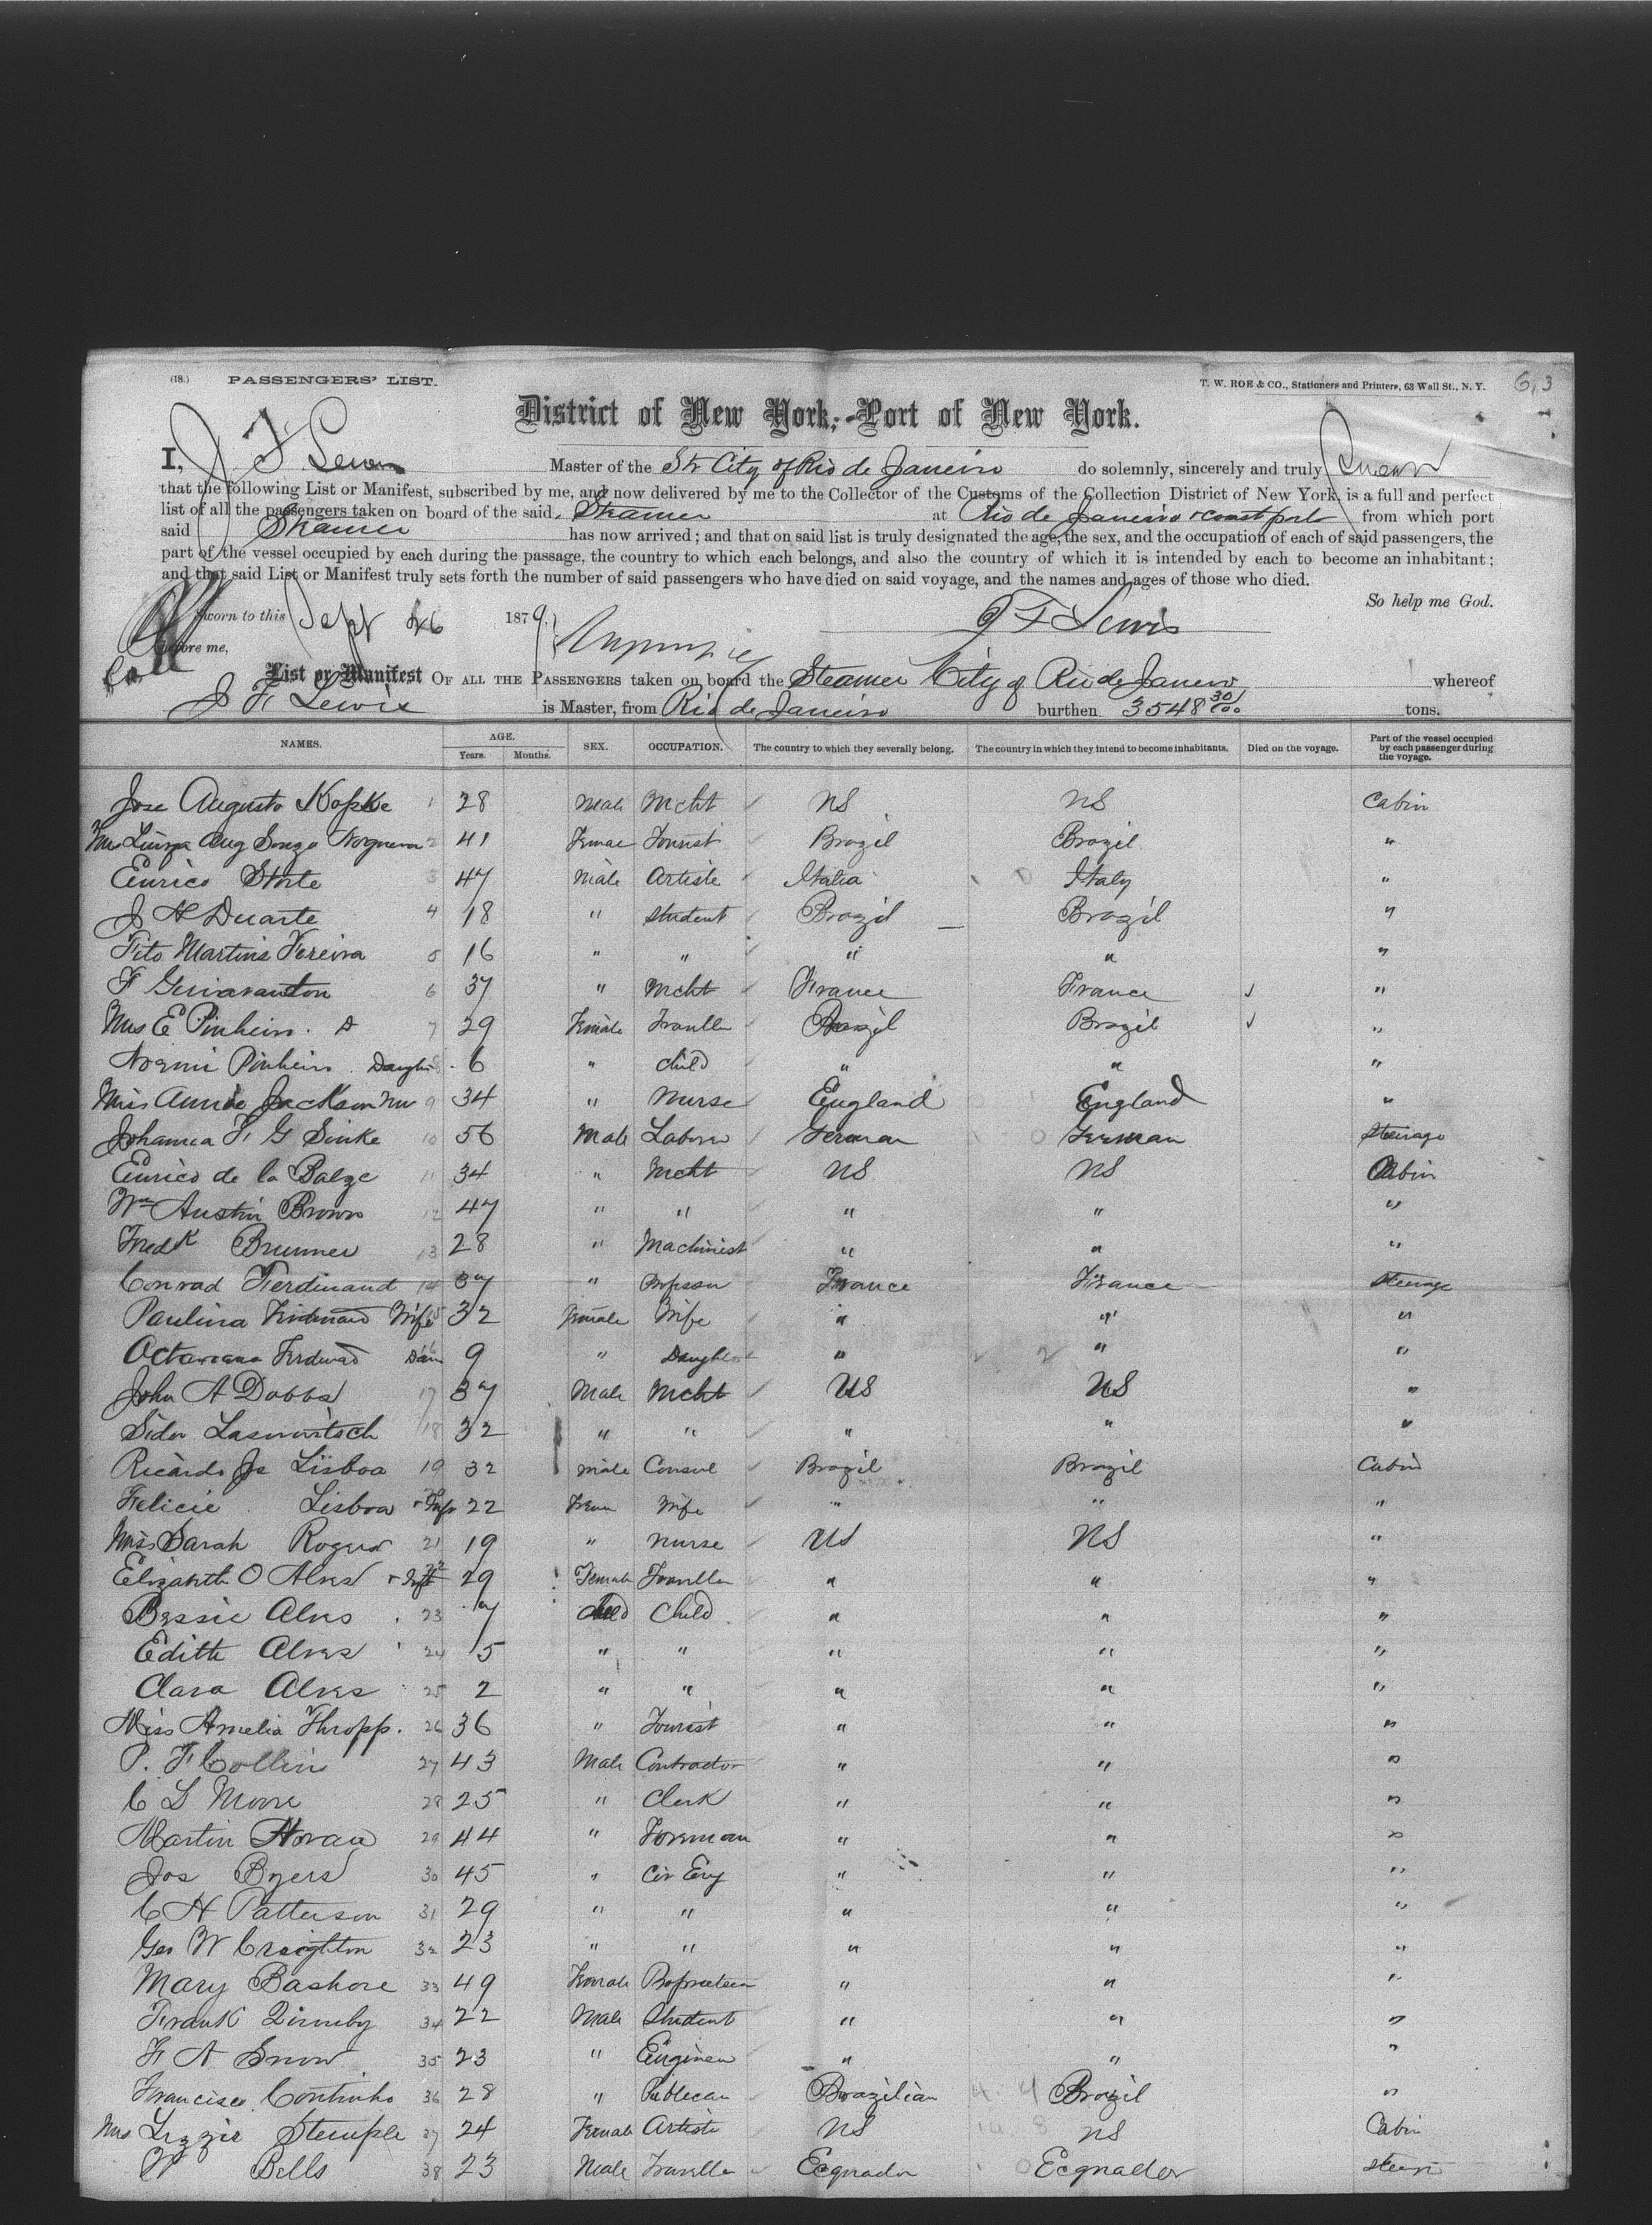 (18.) PASSENGERS' LIST. T. W. ROE & CO., Stationers and Printers, 63 Wall St., N. Y. 6,3
District of New York,-Port of New York.
I, J F Lewis Master of the Str City of Rio de Janeiro do solemnly, sincerely and truly Swear
that the following List or Manifest, subscribed by me, and now delivered by me to the Collector of the Customs of the Collection District of New York, is a full and perfect
list of all the passengers taken on board of the said Steamer at Rio de Janeiro & coast ports from which port
said Steamer has now arrived; and that on said list is truly designated the age, the sex, and the occupation of each of said passengers, the
part of the vessel occupied by each during the passage, the country to which each belongs, and also the country of which it is intended by each to become an inhabitant;
and that said List or Manifest truly sets forth the number of said passengers who have died on said voyage, and the names and ages of those who died.
So help me God.
Sworn to this Sept 26 1879. J F Lewis
before me,
List or Manifest OF ALL THE PASSENGERS taken on board the Steamer City of Rio de Janeiro whereof
J F Lewis is Master, from Rio de Janeiro burthen 3548 30/100 tons.
NAMES. AGE. Years. Months. SEX. OCCUPATION. The country to which they severally belong. The country in which they intend to become inhabitants. Died on the voyage. Part of the vessel occupied by each passenger during the voyage.
Jose Augusto Kopke 1 28 Male Mcht US US Cabin
Luiza Aug Souza Nogueira 2 41 Female Tourist Brazil Brazil "
Enrico Storte 3 47 Male Artiste Italia Italy "
J H Duarte 4 18 " Student Brazil Brazil "
Tito Martins Fereira 5 16 " " " " "
F 6 37 " Mcht France France "
Mrs E Pinheiro 7 29 Female Traveller Brazil Brazil "
Noemi Pinheiro Daughter 8 6 " Child " " "
Miss Annie Jackson 9 34 " Nurse England England "
Johanna F. G Sinke 10 56 Male Laborer German German Steerage
Enrico de la Balze 11 34 " Mcht US US Cabin
Wm Austin Brown 12 47 " " " " "
Fredk Brunner 13 28 " Machinist " " "
Conrad Ferdinand 14 37 " Professor France France Steerage
Paulina Ferdinand Wife 15 32 Female Wife " " "
Octaviana Ferdinand Dau 9 " Daughter " " "
John A Dobbs 17 37 Male Mcht US US "
Sidor 18 32 " " " " "
Ricardo Jr Lisboa 19 32 Male Consul Brazil Brazil Cabin
Felicie Lisboa 22 Fem Wife " " "
Miss Sarah Rogers 21 19 " Nurse US US "
Elizabeth O Alves 22 29 Female Traveller " " "
Bessie Alves 23 7 Child Child " " "
Edith Alves 24 5 " " " " "
Clara Alves 25 2 " " " " "
Miss Amelia Thropp. 26 36 " Tourist " " "
P. F Collins 27 43 Male Contractor " " "
C L Moore 28 25 " Clerk " " "
Martin Horan 29 44 " Foreman " " "
Jos Byers 30 45 " Civ Eng " " "
C H Patterson 31 29 " " " " "
Geo W Creighton 32 23 " " " " "
Mary Bashore 33 49 Female " " "
Frank Zimby 34 22 Male Student " " "
F A Snow 35 23 " Engineer " " "
Francisco Continho 36 28 " Publecan Brazilian Brazil "
Mrs Lizzie Stemple 37 24 Female Artiste US US Cabin
W Bells 38 23 Male Traveller Ecquador Ecquador Steerage